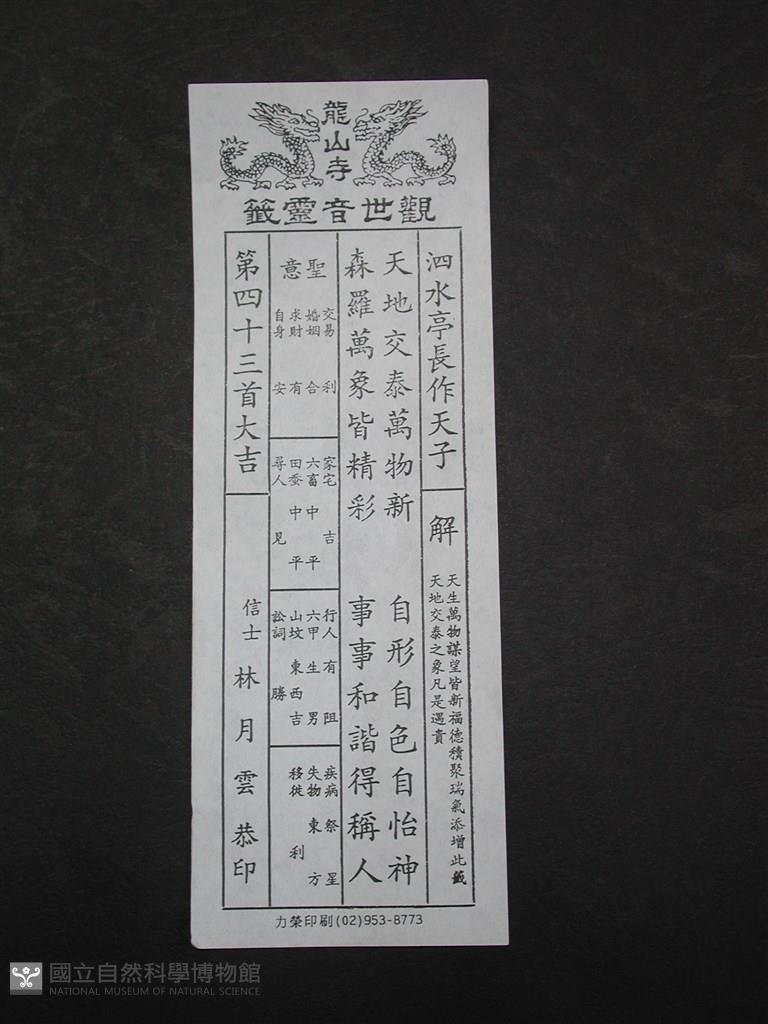 龍山寺
觀世音靈籤
泗水亭長作天子
解
天生萬物謀望皆新福德積聚瑞氣添增此籤
天地交泰之象凡是遇貴
天地交泰萬物新　自形自色自怡神
森羅萬象皆精彩　事事和諧得稱人
聖意
交易　利
婚姻　合
求財　有
自身　安
家宅　吉
六畜　中平
田蚕　中平
尋人　見
行人　有阻
六甲　生男
山坟　東西吉
訟詞　勝
疾病　祭星
失物　東方
移徙　利
第四十三首大吉
信士　林月雲　恭印
力榮印刷(02)953-8773
國立自然科學博物館
NATIONAL MUSEUM OF NATURAL SCIENCE